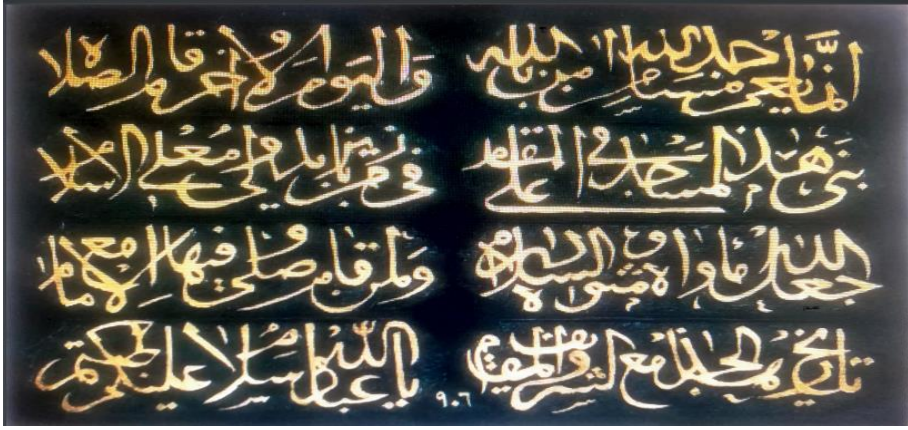 انما يعمر مساجد الله من آمن بالله واليوم الاخر واقام الصلاة
بنى هذا المسجد في المقام في زمن بايزيد ولي معلي الاسلام
جعل الله مأواه ومثواه دار السلام ولمن قام وصلى فيها مع الامام
تاريخ مع الشرف والمقام ٩٠٦ يا عباد الله سلام عليكم طبتم